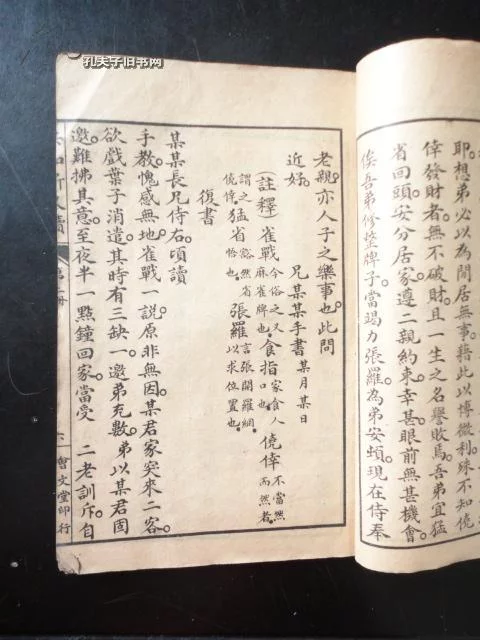 孔夫子旧书网
耶。想弟必以為閒居無事。藉此以博微利。殊不知僥
倖發財者。無不破財。且一生之名譽敗焉。吾弟宜猛
省回頭。安分居家。遵二親約束。幸甚。眼前無甚機會。
俟吾弟修整牌子。當竭力張羅。為弟安頓。現在侍奉
老親。亦人子之樂事也。此問
近好。 兄某某手書 某月某日
(註釋)雀戰 今俗之又麻雀牌也。食指 家食人口也。僥倖 不當然而然者。
謂之僥倖。猛省 豁然省悟也。張羅 言張開羅網以求位置也。
復書
某某長兄侍右。頃讀
手教。愧感無地。雀戰一說。原非無因。某君家突來二客。
欲戲葉子消遣。其時有三缺一。邀弟充數。弟以某君固
邀。難拂其意。至夜半一點鐘回家。當受 二老訓斥。自
第二冊
六
會文堂印行